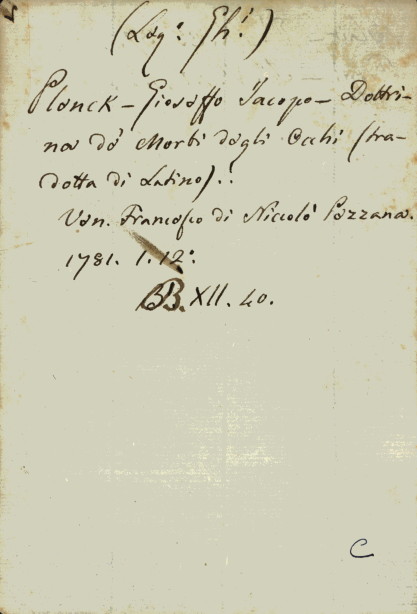 (Leg.º Gh.i)
Planck - Gioseffo Iacopo - Dottri-
na de' Morbi degli Occhi (tra-
dotta di Latino).:
Ven. Francesco di Niccolò Pezzana.
1781. 1. 12º:
BB. XII. 40.
C